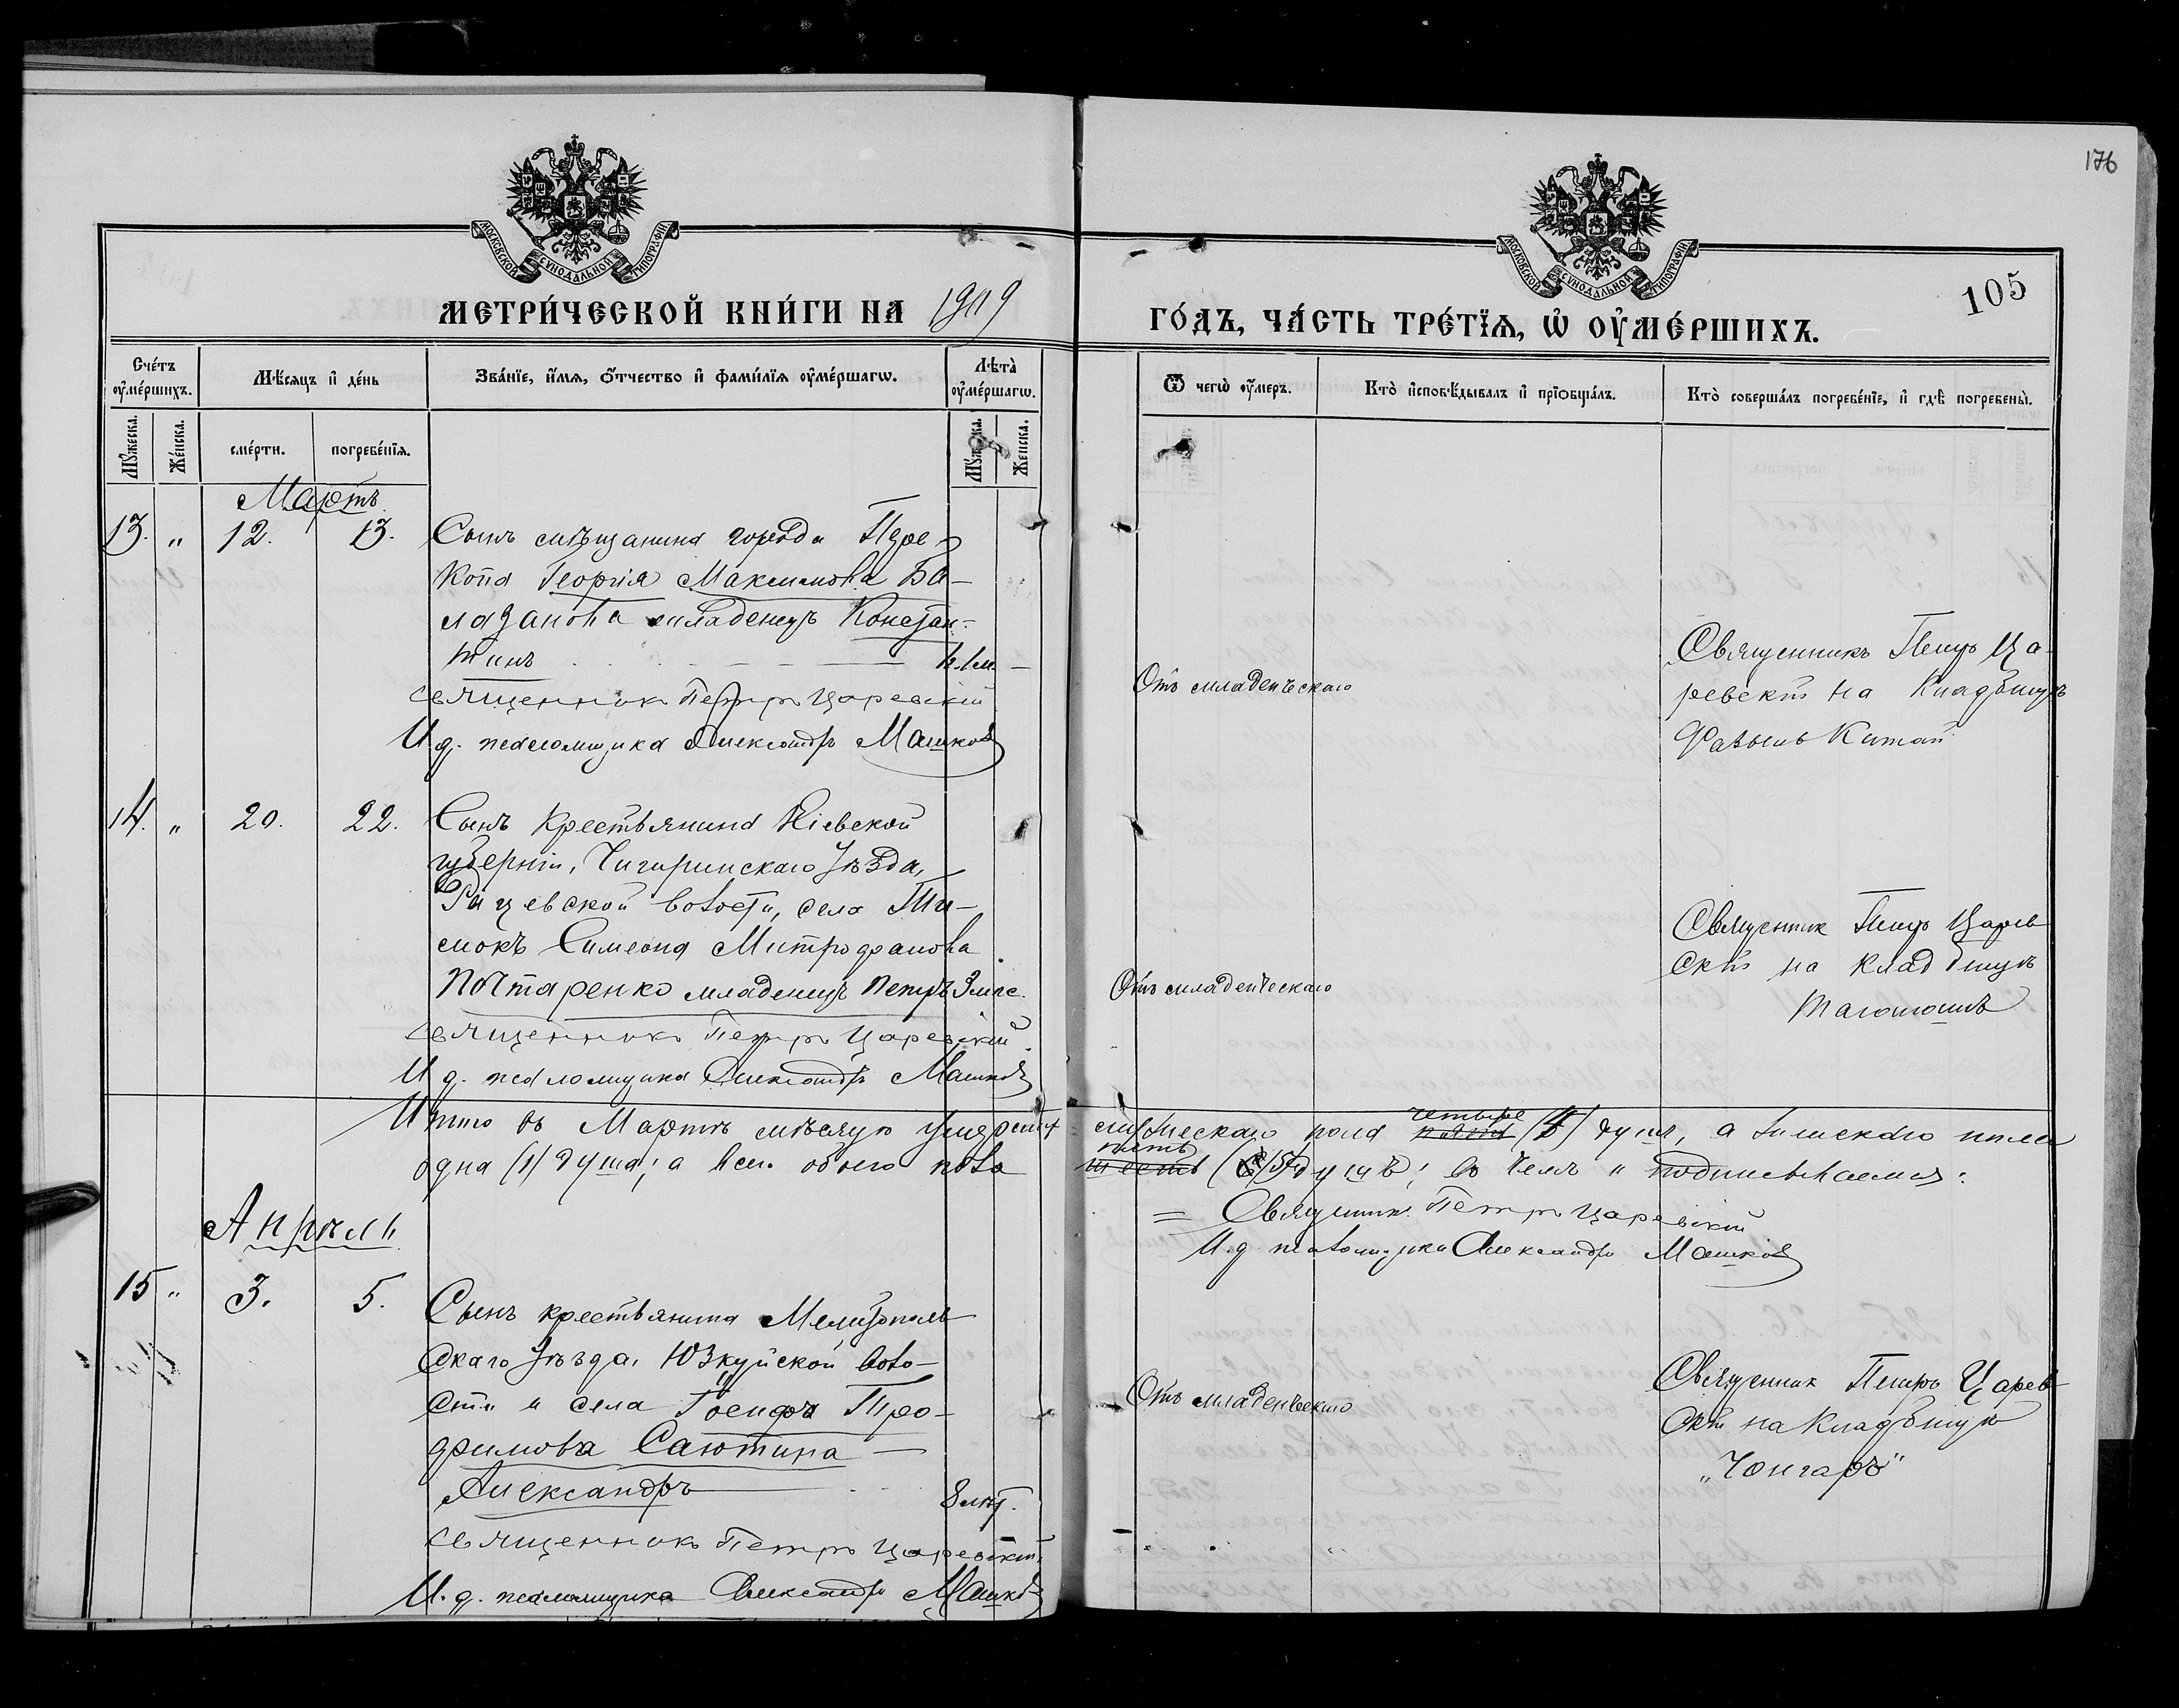 176
МОСКОВСКОЙ СѴНОДАЛЬНОЙ ТИПОГРАФІИ
МОСКОВСКОЙ СѴНОДАЛЬНОЙ ТИПОГРАФІИ
105
МЕТРИ́ЧЕСКОЙ КНИ́ГИ НА 1909
ГО́ДЪ, ЧА́СТЬ ТРЕ́ТЇѦ, Ѡ҆ ОУ҆МЕ́РШИХЪ.
Сче́тъ оу҆ме́ршихъ.
Мѣ́сѧцъ и҆ де́нь
Зва́нїе, и҆́мѧ, ѻ҆́тчество и҆ фами́лїѧ оу҆ме́ршагѡ.
Лѣ̑та̀ оу҆ме́ршагѡ.
Ѿ чегѡ̀ оу҆́меръ.
Кто̀ и҆сповѣ́дывалъ и҆ прїѡбща́лъ.
Кто̀ соверша́лъ погребе́нїе, и҆ гдѣ̀ погребены̀.
Мꙋ́жеска.
Же́нска.
сме́рти.
погребе́нїѧ.
Мꙋ́жеска.
Же́нска.
Мартъ
13. " 12. 13.
Сынъ мѣщанина города Пере-
копа Георгія Максимова Ба-
лазанова младенецъ Констан-
тинъ
Священникъ Петръ Царевскій
И. д. псаломщика Александръ Машковъ
Отъ младенческаго
Священникъ Петръ Ца-
ревскій на кладбищѣ
Китай
14. " 20. 22.
Сынъ крестьянина Кіевской
губерніи, Чигиринскаго уѣзда,
волости, села Ти-
мокъ Симеона Митрофанова
Почтаренко младенецъ Петръ 3 мѣс.
Священникъ Петръ Царевскій
И. д. псаломщика Александръ Машковъ
Отъ младенческаго
Священник Петръ Царев-
скій на кладбищѣ
Итого въ Мартѣ мѣсяцѣ умерших мужескаго пола четыре пять (4) душ, а женскаго пола
одна (1) душа; а всего обоего пола пять шесть (5) душъ; въ чемъ и подписываемся:
Священник Петръ Царевскій
И. д. псаломщика Александръ Машковъ
Апрѣль
15 " 3. 5.
Сынъ крестьянина Мелитополь-
скаго уѣзда, Юзкуйской воло-
сти и села Іосифа Тро-
фимова Саютина
Александръ 8 лѣт.
Священникъ Петръ Царевскій
И. д. псаломщика Александръ Машковъ
Отъ младенческаго
Священник Петръ Царев-
скій на кладбищѣ
„Чонгаръ"